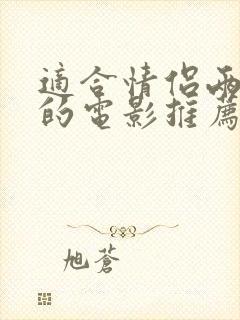 適合情侶兩
的電影推薦
旭蒼